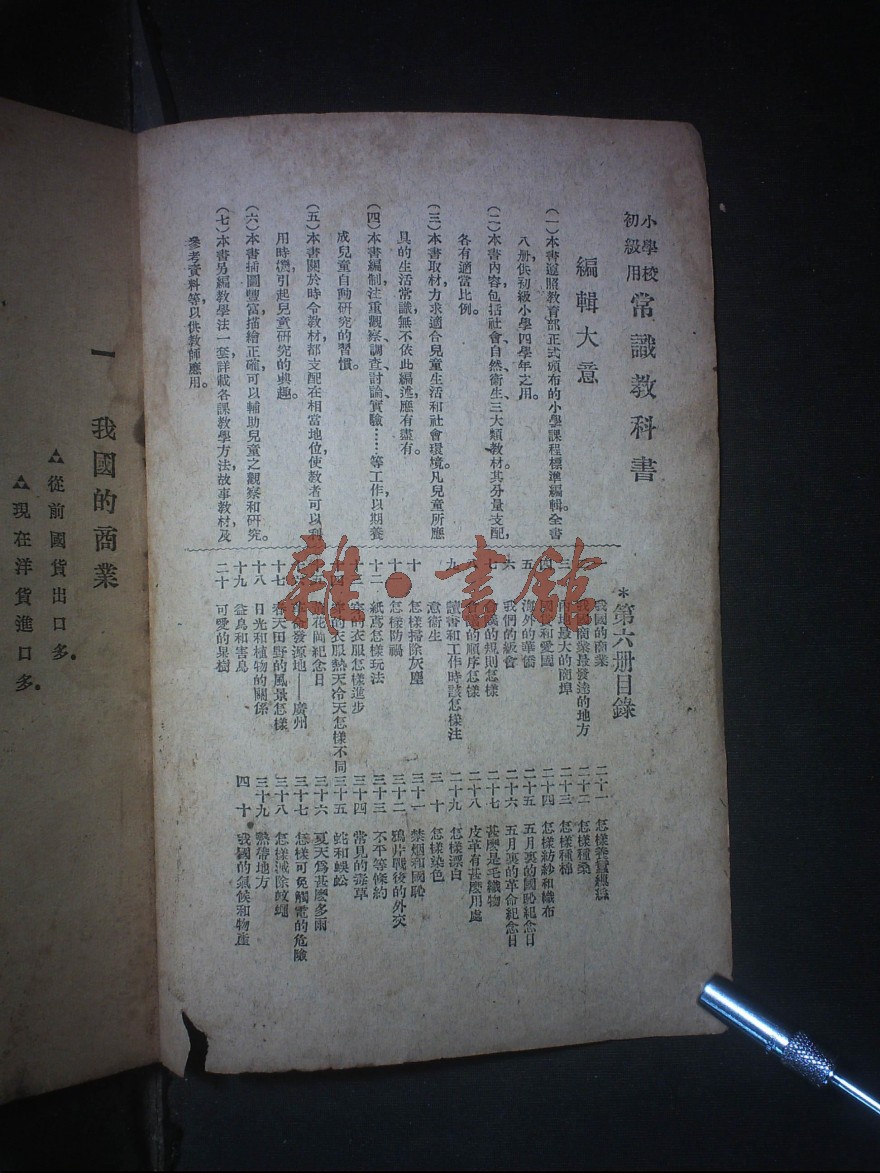 小學校
初級用
常識教科書
編輯大意
(一)本書遵照教育部正式頒布的小學課程標準編輯。全書
八册，供初級小學四學年之用。
(二)本書內容包括社會、自然、衛生三大類教材。其分量支配，
各有適當比例。
(三)本書取材力求適合兒童生活和社會環境。凡兒童所應
具的生活常識，無不依此編述，應有盡有。
(四)本書編制，注重觀察、調查、討論、實驗……等工作，以期養
成兒童自動研究的習慣。
(五)本書關於時令教材，都支配在相當地位，使教者可以利
用時機，引起兒童研究的興趣。
(六)本書插圖豐富，描繪正確，可以輔助兒童之觀察和研究。
(七)本書另編教學法一套，詳載各課教學方法、故事教材，及
參考資料等，以供教師應用。
*第六册目錄
我國的商業
商業最發達的地方
最大的商埠
和愛國
五 海外的華僑
六 我們的級會
七 的規則怎樣
的順序怎樣
九 讀書和工作時該怎樣注
意衛生
十 怎樣掃除灰塵
十一 怎樣防禍
十二 紙鳶怎樣玩法
十三 的衣服怎樣進步
的衣服熱天冷天怎樣不同
花岡紀念日
革命發源地——廣州
十七 春天田野的風景怎樣
十八 日光和植物的關係
十九 益鳥和害鳥
二十 可愛的果樹
二十一 怎樣養蠶繅絲
二十二 怎樣種桑
二十三 怎樣種棉
二十四 怎樣紡紗和織布
二十五 五月裏的國恥紀念日
二十六 五月裏的革命紀念日
二十七 甚麼是毛織物
二十八 皮革有甚麼用處
二十九 怎樣漂白
三十 怎樣染色
三十一 禁煙和國恥
三十二 鴉片戰後的外交
三十三 不平等條約
三十四 常見的毒草
三十五 蛇和蜈蚣
三十六 夏天爲甚麼多雨
三十七 怎樣可免觸電的危險
三十八 怎樣滅除蚊蠅
三十九 熱帶地方
四十 我國的氣候和物產
一 我國的商業
從前國貨出口多。
現在洋貨進口多。
雜·書館